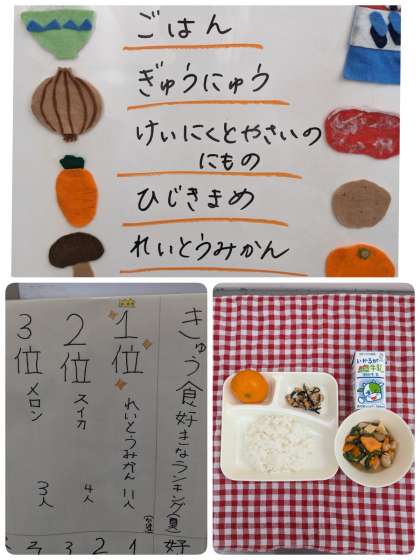 ごはん
ぎゅうにゅう
けいにくとやさいの
にもの
ひじきまめ
れいとうみかん
きゅう食好きなランキング(夏)
1位 れいとうみかん 11人
2位 スイカ 4人
3位 メロン 3人
いかるが
牛乳